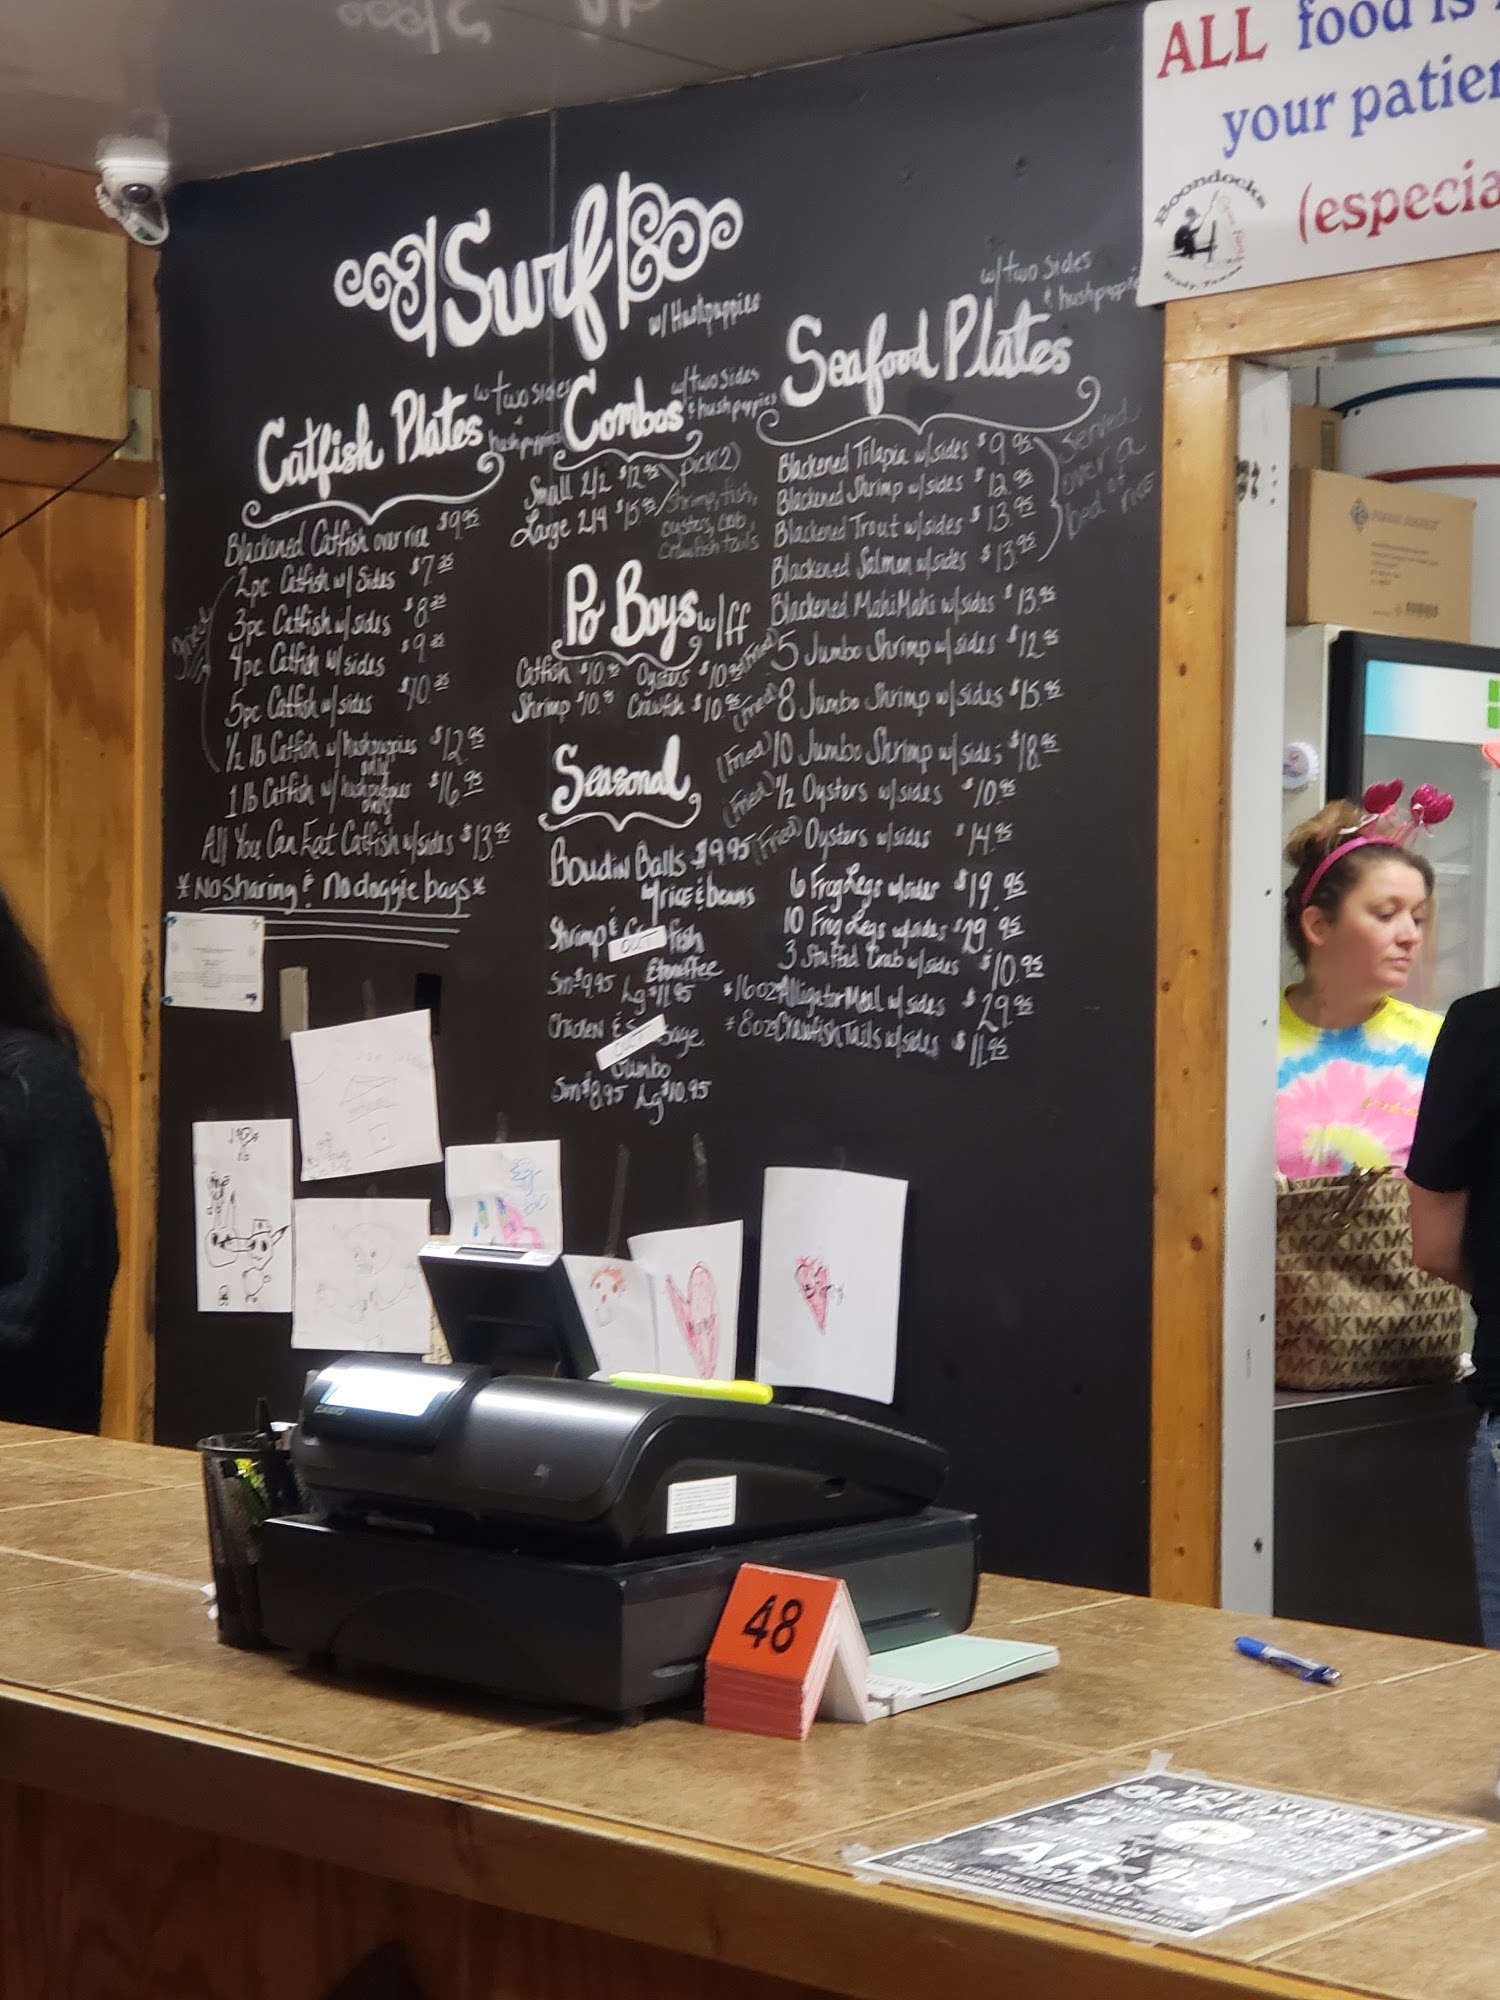 ALL food is
your patien
(especia
Boondocks
Brady, Texas
Surf
w/ Hushpuppies
Catfish Plates
w/ two sides
& hushpuppies
Blackened Catfish over rice $9.95
2pc Catfish w/ Sides $7.25
3pc Catfish w/ sides $8.25
4pc Catfish w/ sides $9.25
5pc Catfish w/ sides $10.25
½ lb Catfish w/ hushpuppies only $12.95
1 lb Catfish w/ hushpuppies only $16.95
All You Can Eat Catfish w/sides $13.95
*No sharing & No doggie bags*
Combos
w/ two sides
& hushpuppies
Small 2/2 $12.95
Large 2/4 $15.95
pick (2)
Shrimp, fish,
oysters, crab,
Crawfish tails
Po Boys w/ff
Catfish $10.95 Oysters $10.95
Shrimp $10.95 Crawfish $10.95
Seasonal
Boudin Balls $9.95
w/rice & beans
Shrimp & fish
OUT
Etouffee
Sm $9.95 Lg $11.95
Chicken & Sausage
OUT
Gumbo
Sm $8.95 Lg $10.95
Seafood Plates
w/ two sides
& hushpuppie
Blackened Tilapia w/sides $9.95
Blackened Shrimp w/sides $12.95
Blackened Trout w/sides $13.95
Blackened Salmon w/sides $13.95
Served
over a
bed of
rice
Blackened Mahi Mahi w/sides $13.95
(Fried) 5 Jumbo Shrimp w/sides $12.95
(Fried) 8 Jumbo Shrimp w/sides $15.95
(Fried) 10 Jumbo Shrimp w/sides $18.95
(Fried) ½ Oysters w/sides $10.95
(Fried) Oysters w/sides $14.95
6 Frog Legs w/sides $19.95
10 Frog Legs w/sides $29.95
3 Stuffed Crab w/sides $10.95
*16oz Alligator Meal w/sides $29.95
*8oz Crawfish Tails w/sides $11.95
CASIO
48
MK MK MK